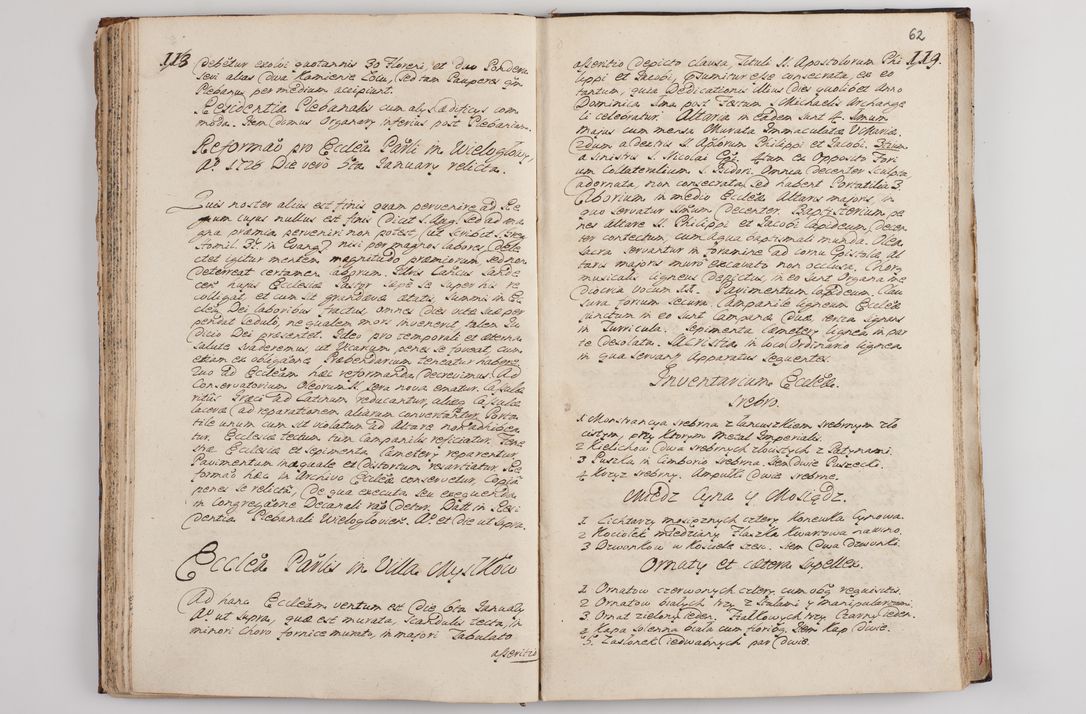 113
debetur exolvi quotannis 30 Floreni et duo Pondera
sevi alias dwa Kamienie Łoiu, sed tam Pauperes qm
Plebanus per medium accipiunt.
Residentia Plebanalis cum
moda. Item Domus Organarij inferius post Plebaniam.
Reformao pro Ecclia Parli in Wielogłowy,
Ao. 1728 Die vero 5ta January relicta.
noster alius est finis quam pervenire ad Re
gnum cujus nullus est finis Dicit S. Aug. Sed ad ma
gna præmia perveniri non potest, ut scribit S. Greg.
Homil. 3. in Evang. nisi per magnos labores, dele
ctet igitur mentem magnitudo præmiorum, sed non
deterreat certamen laborum.
hujus Ecclesiæ Pastor sæpe se super his re
colligat et cum sit grandævæ ætatis, summis in Ec
clea Dei laboribus fractus, omnes dies vitæ suæ per
pendat sedulo, ne qualem mors invenerit, talem Ju
dicio Dei præsentet. Ideo pro temporali et æterna
salute suaderemus, ut Vicarium penes se foveat, cum
etiam ex obligaone Præbendarium teneatur habere.
Quo ad Eccleam hæc reformanda decrevimus. Ad
Conservatorium Oleorum S. sera nova ematur. Casulæ
ritus Græci ad Latinum reducantur, aliæq Casulæ
laceræ ad reparationem aliarum convertantur, Porta
tile unum cum sit violatum ad Altare non adhibea
tur. Ecclesiæ tectum tum Campanilis reficiatur. Fene
stræ Ecclesiæ et sepimenta Cæmetery reparentur.
Pavimentum inæquale et distortum resarciatur. Re
formao hæc in Archivo Eccleæ conservetur, Copia
penes se relicta, de qua executa seu exequenda
in Congregaone Decanali rao detur. Datt. in Resi
dentia Plebanali Wieloglovien. Ao. et die ut supra.
Ecclea Parlis in Villa Mystkow
Ad hanc Eccleam ventum est Die 6ta January
Ao. ut supra, quæ est murata, Scandulis tecta, in
minori Choro fornice murato, in majori Tabulato
asseritio
62
119.
asseritio depicto clausa, Tituli S. Apostolorum Phi
lippi et Jacobi, præsumitur esse consecrata, ex eo
tantum, quia Dedicationis illius dies quolibet Anno
Dominica ima post Festum S. Michaelis Archange
li celebratur. Altaria in eadem sunt 4. imum
majus cum mensa Murata Immaculatæ V. Mariæ.
2dum a dextris S. Aptorum Philippi et Jacobi. 3tium
a sinistris S. Nicolai Epi. 4tum ex Opposito Fori
um Collateralium S. Isidori. Omnia decenter sculpta
adornata, non consecrata, sed habent Portatilia 3.
Ciborium in medio Eccleæ Altaris majoris, in
quo servatur Ssmum decenter. Baptisterium pe
nes Altare S. Philippi et Jacobi lapideum, decen
ter contectum, cum Aqua baptismali munda. Olea
Sacra servantur in foramine ad cornu Epistolæ Al
taris majoris muro excavato non occlusa. Chorus
musicalis ligneus depictus, in eo sunt Organa me
diocria vocum Pavimentum lapideum, Clau
sura forium secura, Campanile ligneum Ecclesiæ
junctum in eo sunt Campanæ duæ, tertia signans
in Turricula. Sepimenta Cæmetery lignea in par
te desolata. Sacristia in loco Ordinario lignea
in qua servant Apparatus sequentes.
Inventarium Eccleæ.
Srebro.
1 Monstrancya srebrna z łancuszkiem srebrnym zło
cistym, przy ktorym Metal Imperialis.
2 Kielichow dwa srebrnych złocistych z Patynami.
3 Puszka in Ciborio srebrna. Item Dwie Puszecki.
4 Krzyz srebrny. Ampułki Dwie srebrne.
Miedz Cyna y Mosiądz.
1 Lichtarzy mosięznych cztery Konewka Cynowa.
2 Kociołek miedziany Flaszka kwartowa na wino.
3 Dzwonkow w Kosciele szesc. Item Dwa Dzwonki.
Ornaty et cætera Supellex.
1 Ornatow czerwonych cztery cum oibq requisitis.
2 Ornatow białych trzy z Stułami y Manipularzami.
3. Ornat zielony Jeden. Fiałkowych trzy Czarny Jeden.
4 Kapa solenna biała cum floribq Item Kap Dwie.
5. Zasłonek iedwabnych par Dwie.